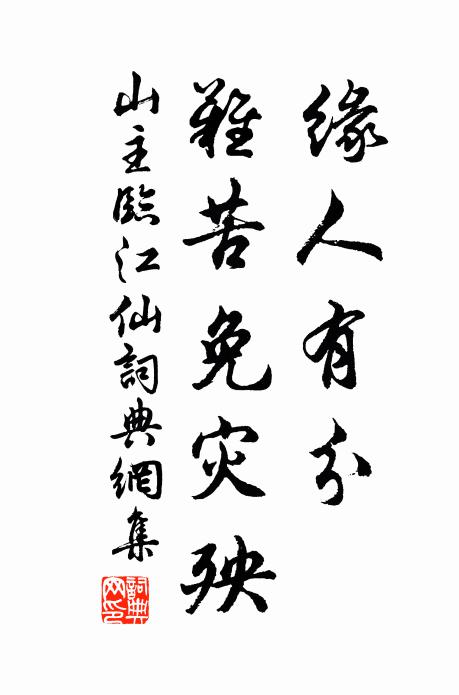 缘人有分
難苦免灾殃
山主臨江仙詞典網集
詞典
网印